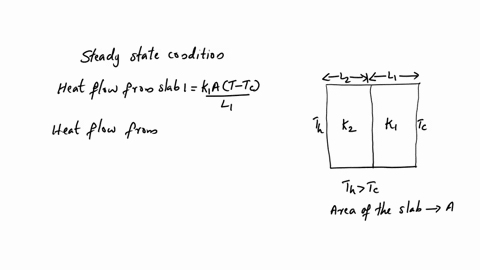 Steady state condition
Heat flow from slab 1 = K₁A(T-Tc)/L₁
Heat flow from
L₂ L₁
Th K₂ K₁ Tc
Th > Tc
Area of the slab → A